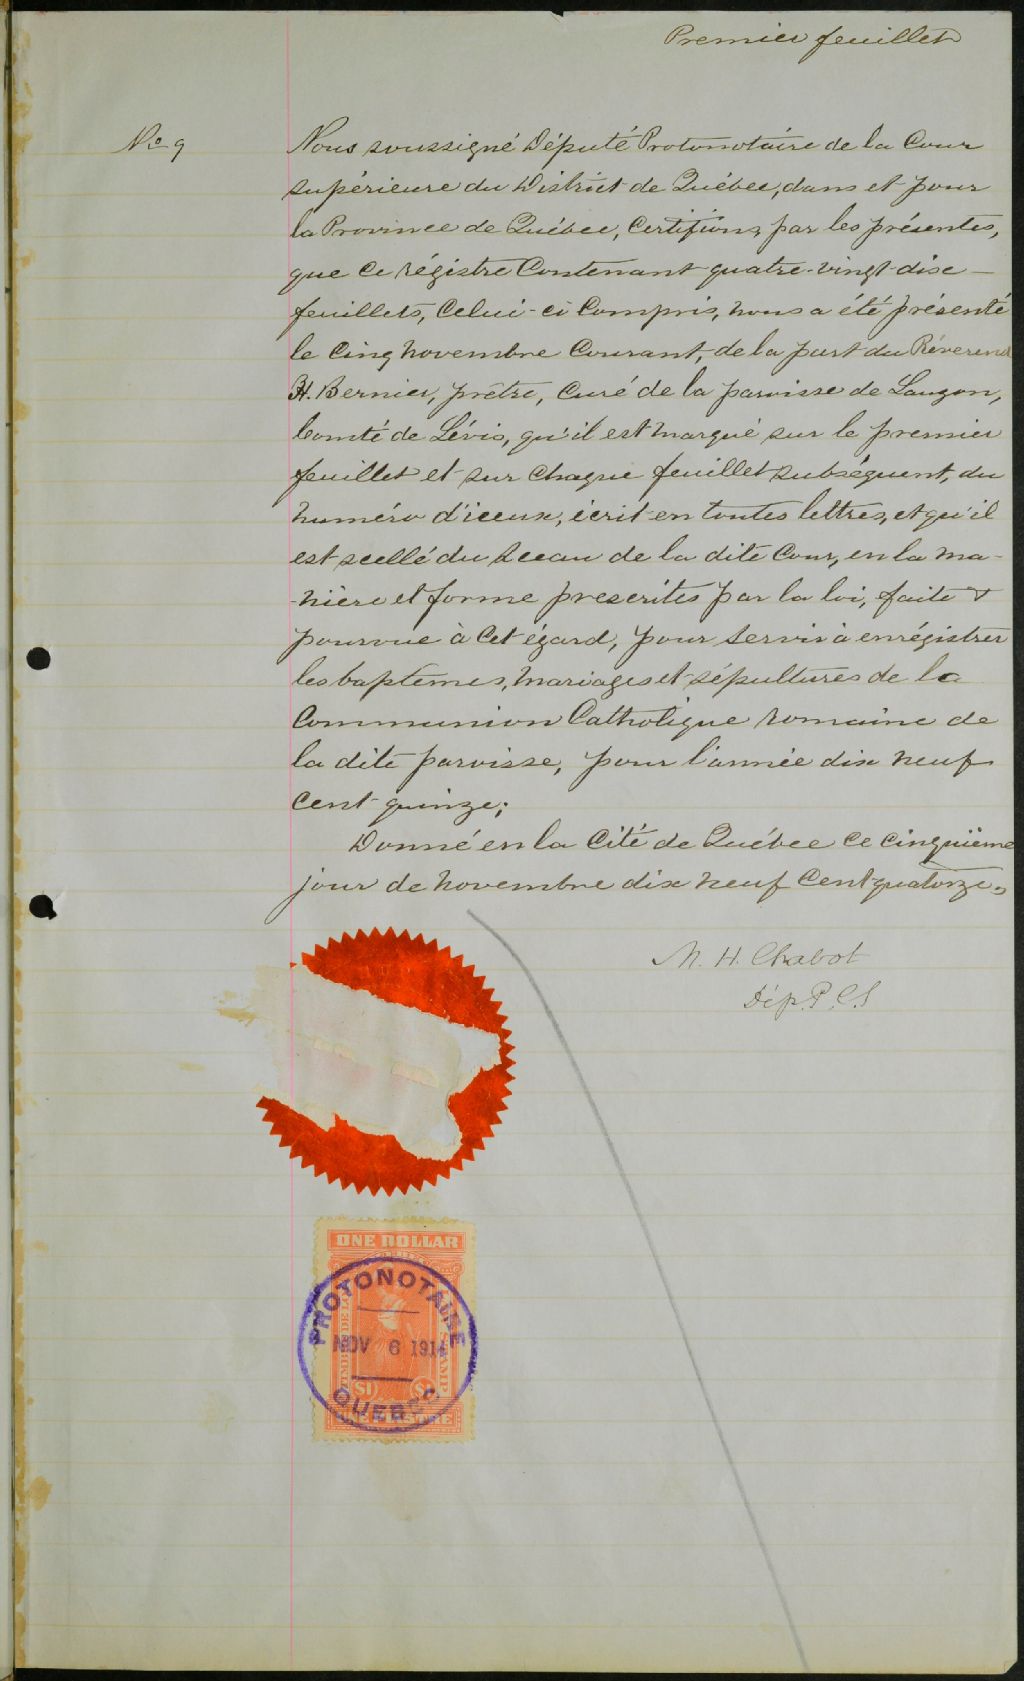 Premier feuillet
No 9
Nous soussigné Député Protonotaire de la Cour
supérieure du District de Québec, dans et pour
la Province de Québec, Certifions par les présentes,
que ce régistre Contenant quatre-vingt-dix
feuillets, Celui-ci Compris, nous a été présenté
le Cinq novembre Courant, de la part du Révérend
H. Bernier, prêtre, Curé de la paroisse de Lauzon,
Comté de Lévis, qu'il est marqué sur le premier
feuillet et sur chaque feuillet subséquent, du
numéro d'iceux, écrit en toutes lettres, et qu'il
est scellé du Sceau de la dite Cour, en la ma-
-nière et forme prescrites par la loi, faite &
pourvue à Cet égard, pour servir à enrégistrer
les baptêmes, mariages et sépultures de la
Communion Catholique romaine de
la dite paroisse, pour l'année dix neuf
cent quinze;
Donné en la Cité de Québec ce cinquième
jour de novembre dix neuf Cent quatorze.
N. H. Chabot
Dép. P. C. S
ONE DOLLAR
PROTONOTAIRE
NOV 6 1914
STAMP
$1 $1
QUEBEC